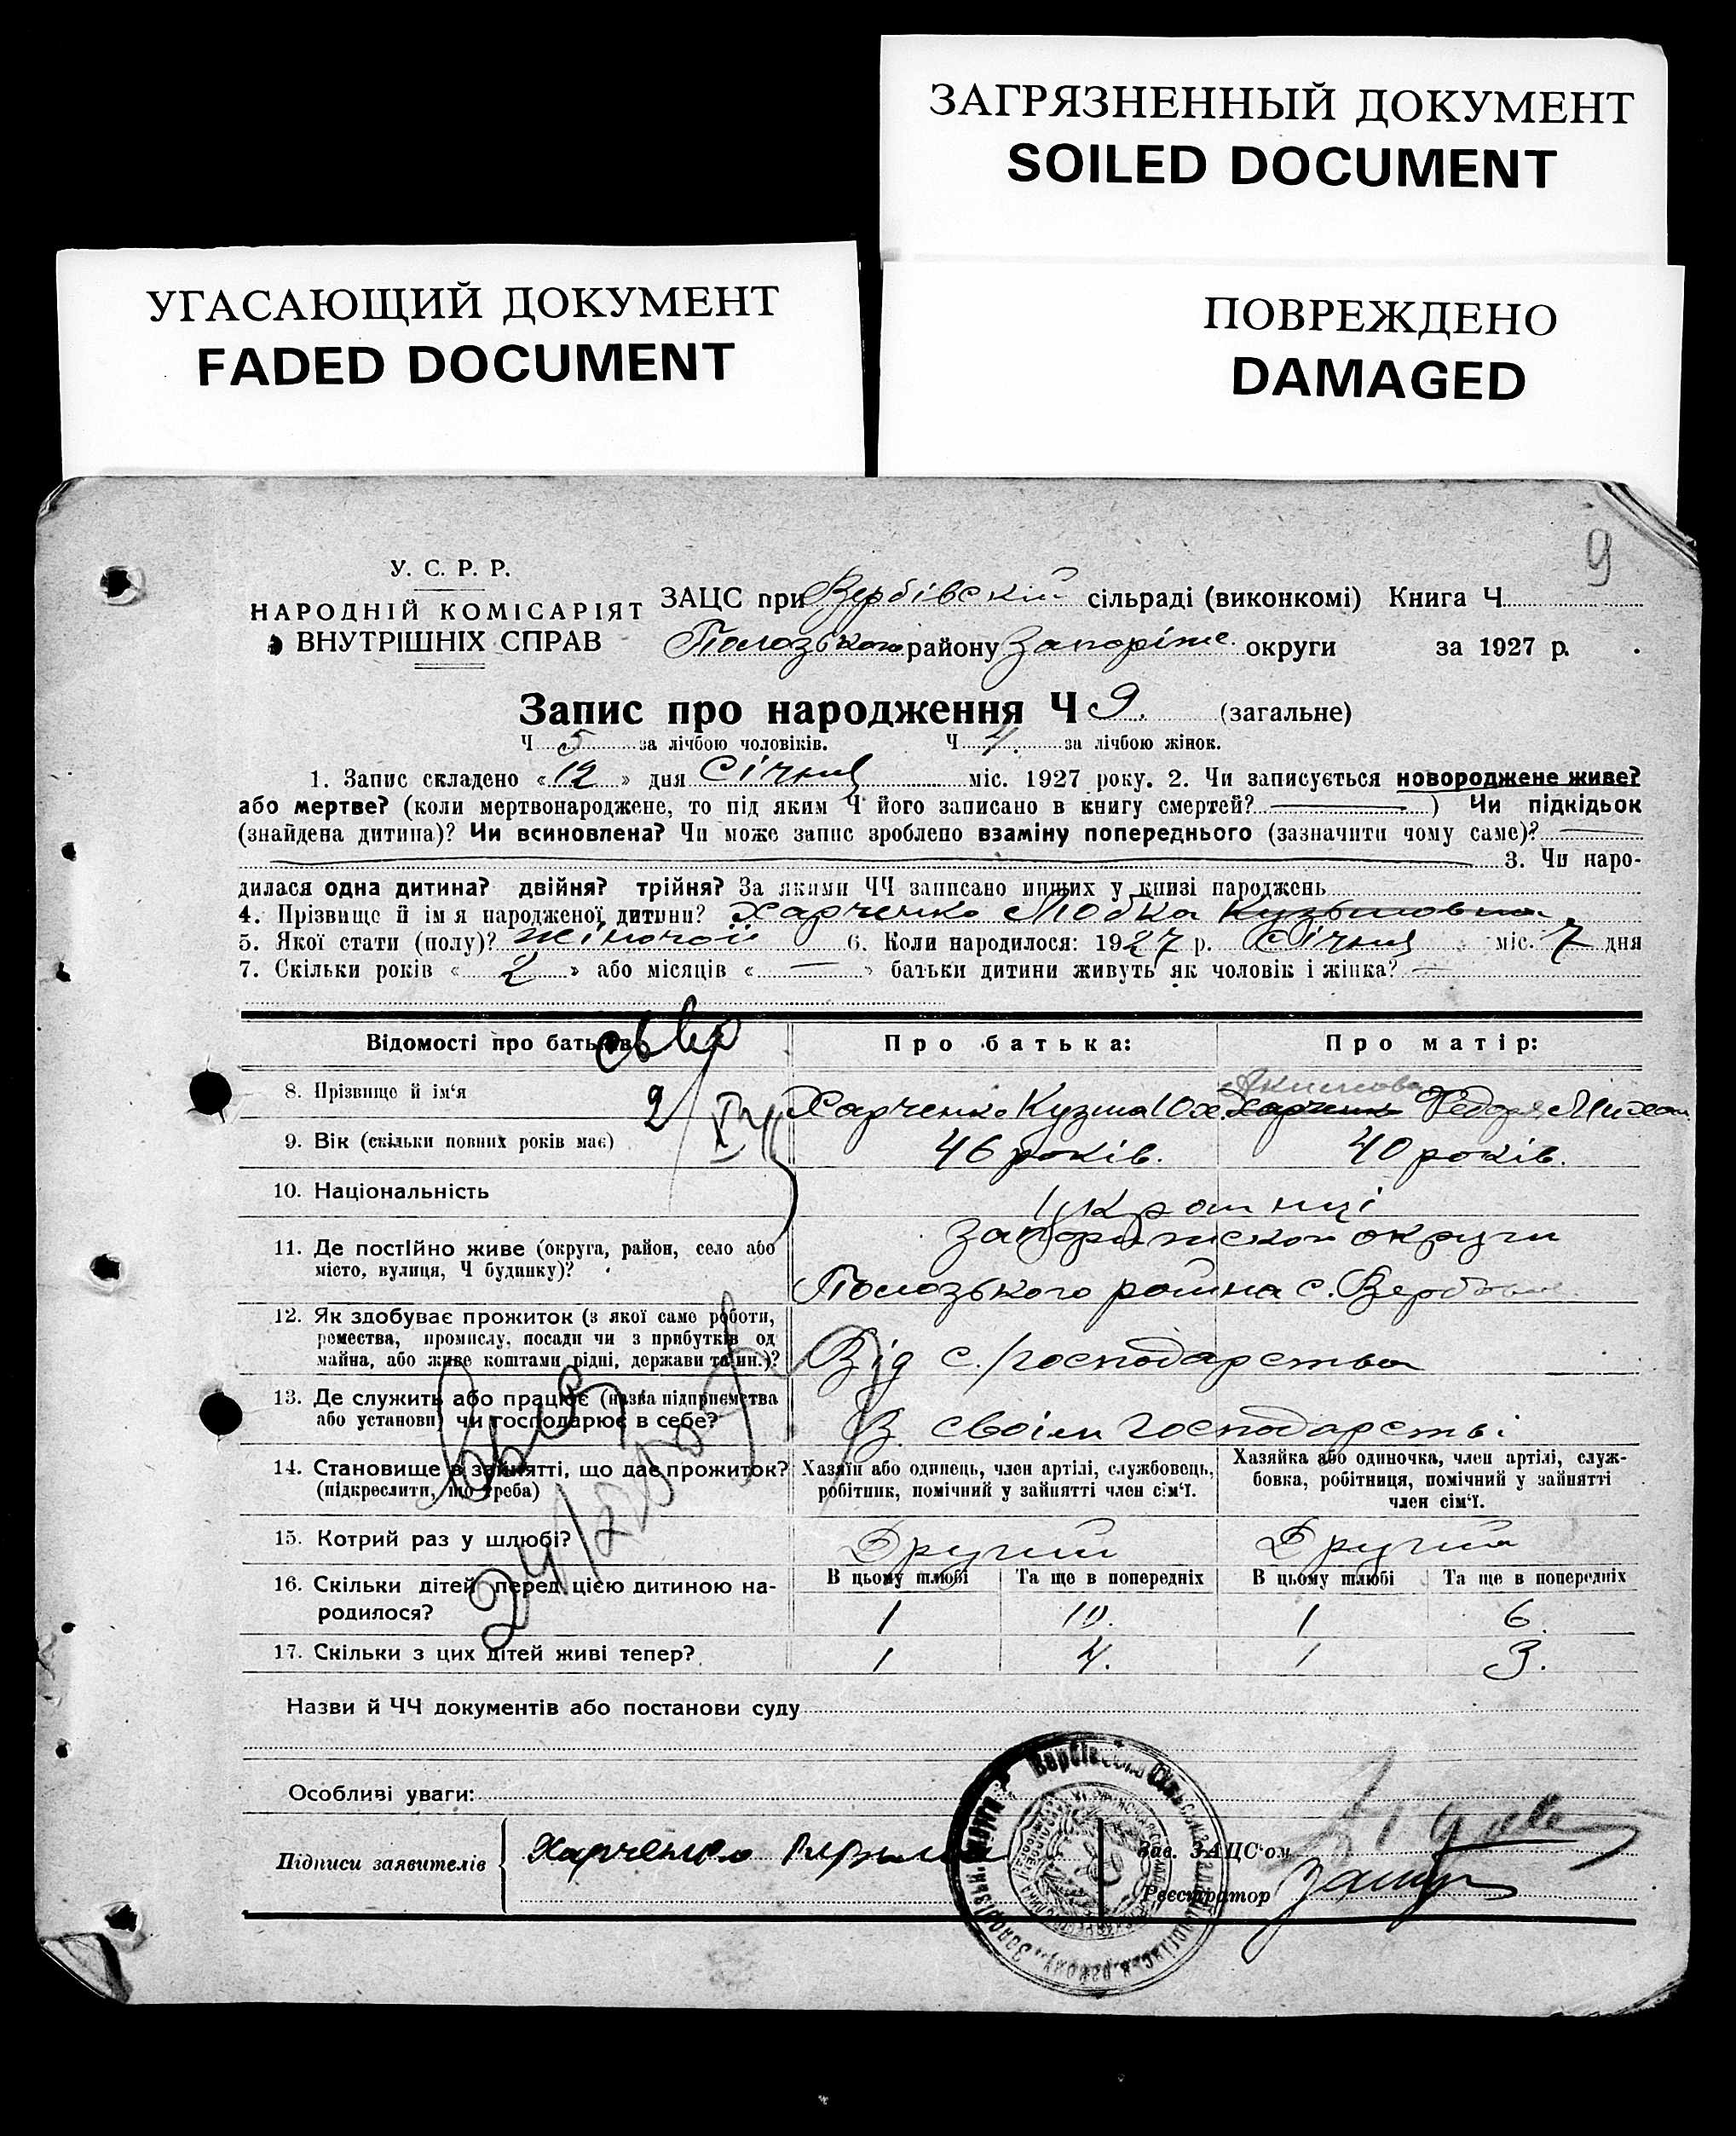 ЗАГРЯЗНЕННЫЙ ДОКУМЕНТ
SOILED DOCUMENT
УГАСАЮЩИЙ ДОКУМЕНТ
FADED DOCUMENT
ПОВРЕЖДЕНО
DAMAGED
9
У. С. Р. Р.
НАРОДНІЙ КОМІСАРІЯТ
ВНУТРІШНІХ СПРАВ
ЗАЦС при Вербівскій сільраді (виконкомі) Книга Ч
Пологзького району Запоріж округи за 1927 р.
Запис про народження Ч 9. (загальне)
Ч 5 за лічбою чоловіків. Ч 4. за лічбою жінок.
1. Запис складено «12» дня Січня міс. 1927 року. 2. Чи записується новороджене живе?
або мертве? (коли мертвонароджене, то під яким Ч його записано в книгу смертей? ) Чи підкідьок
(знайдена дитина)? Чи всиновлена? Чи може запис зроблено взаміну попереднього (зазначити чому саме)?
3. Чи наро-
дилася одна дитина? двійня? трійня? За якими ЧЧ записано инших у книзі народжень
4. Прізвище й ім я народженої дитини? Харченко Любка Кузьмовна
5. Якої стати (полу)? Жіночой 6. Коли народилося: 1927 р. Січня міс. 7 дня
7. Скільки років «2» або місяців « — » батьки дитини живуть як чоловік і жінка? —
Відомості про батьків Про батька: Про матір:
8. Прізвище й ім'я Харченко Кузма Юх. Акимова Харченко Федора Михай
9. Вік (скільки повних років має) 46 років. 40 років.
10. Національність Украінці
11. Де постійно живе (округа, район, село або
місто, вулиця, Ч будинку)?
округи
Пологзького района с. Вербове
12. Як здобуває прожиток (з якої саме роботи,
ремества, промислу, посади чи з прибутків од
майна, або живе коштами рідні, держави та ин.)?
Від с./господарства
13. Де служить або працює (назва підприємства
або установи) чи господарює в себе?
В своім господарстві
14. Становище в зайнятті, що дає прожиток?
(підкреслити, що треба)
Хазяїн або одинець, член артілі, службовець,
робітник, помічний у зайнятті член сім'ї.
Хазяйка або одиночка, член артілі, служ-
бовка, робітниця, помічний у зайнятті
член сім'ї.
15. Котрий раз у шлюбі? Другий Другий
В цьому шлюбі Та ще в попередніх В цьому шлюбі Та ще в попередніх
16. Скільки дітей перед цією дитиною на-
родилося?
1 10. 1 6.
17. Скільки з цих дітей живі тепер? 1 4. 1 3.
Назви й ЧЧ документів або постанови суду
Особливі уваги:
Підписи заявителів Харченко
Зав. ЗАЦС'ом
Реєстратор